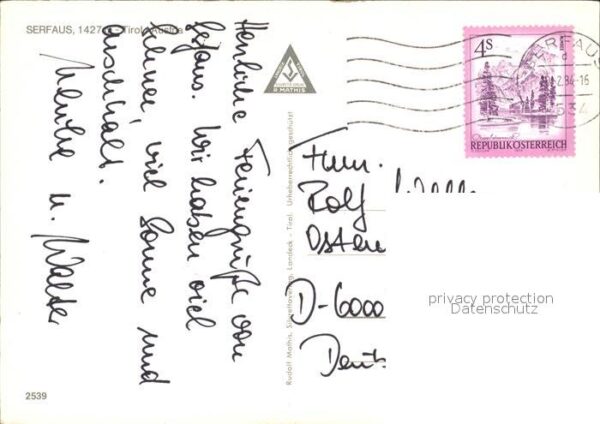 SERFAUS, 1427 m - Tirol - Austria
Herzliche Feriengrüße von
Serfaus. Wir haben viel
Schnee, viel Sonne und
u. Walter
R. MATHIS
Rudolf Mathis, Silvrettaverlag, Landeck - Tirol. Urheberrechtlich geschützt
4S
REPUBLIK ÖSTERREICH
SERFAUS
2.84-16
6534
Fam.
Rolf
Osten
D-6000
Deuts
privacy protection
Datenschutz
2539